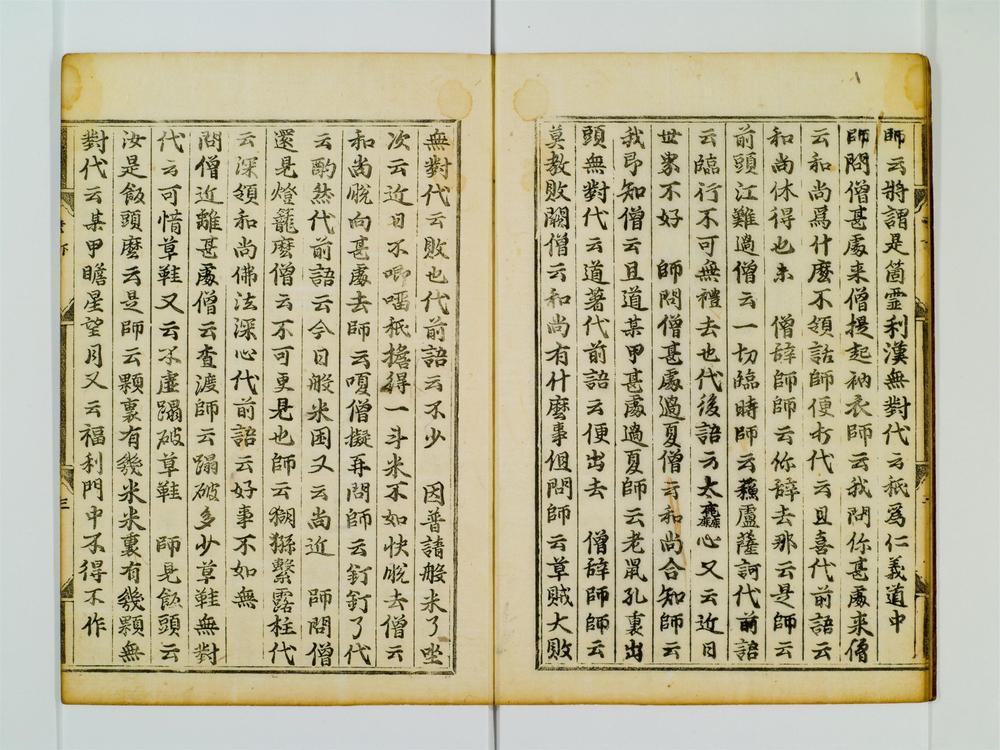 師云將謂是箇霊利漢無對代云祇爲仁義道中
師問僧甚處来僧提起衲衣師云我問你甚處来僧
云和尚爲什麼不領話師便打代云且喜代前語云
和尚休得也未　僧辞師師云你辞去那云是師云
前頭江難過僧云一切臨時師云蘓盧薩訶代前語
云臨行不可無禮去也代後語云太麁心又云近日
世界不好　師問僧甚處過夏僧云和尚合知師云
我早知僧云且道某甲甚處過夏師云老鼠孔裏出
頭無對代云道著代前語云便出去　僧辞師師云
莫教敗闕僧云和尚有什麼事但問師云草賊大敗
無對代云敗也代前語云不少　因普請般米了坐
次云近日不唧𠺕祇擔得一斗米不如快脱去僧云
和尚脱向甚處去師云嗄僧擬再問師云釘釘了代
云酌然代前語云今日般米困又云尚近　師問僧
還見燈籠麼僧云不可更見也師云猢猻繋露柱代
云深領和尚佛法深心代前語云好事不如無
問僧近離甚處僧云查渡師云蹋破多少草鞋無對
代云可惜草鞋又云不虛蹋破草鞋　師見飯頭云
汝是飯頭麼云是師云顆裏有幾米米裏有幾顆無
對代云某甲瞻星望月又云福利門中不得不作